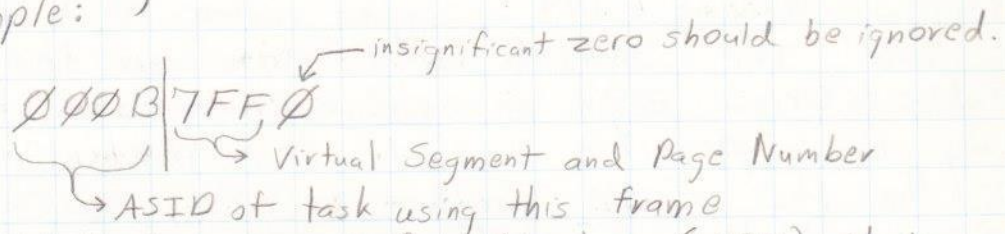 ple:
insignificant zero should be ignored.
ØØØB|7FFØ
Virtual Segment and Page Number
ASID of task using this frame